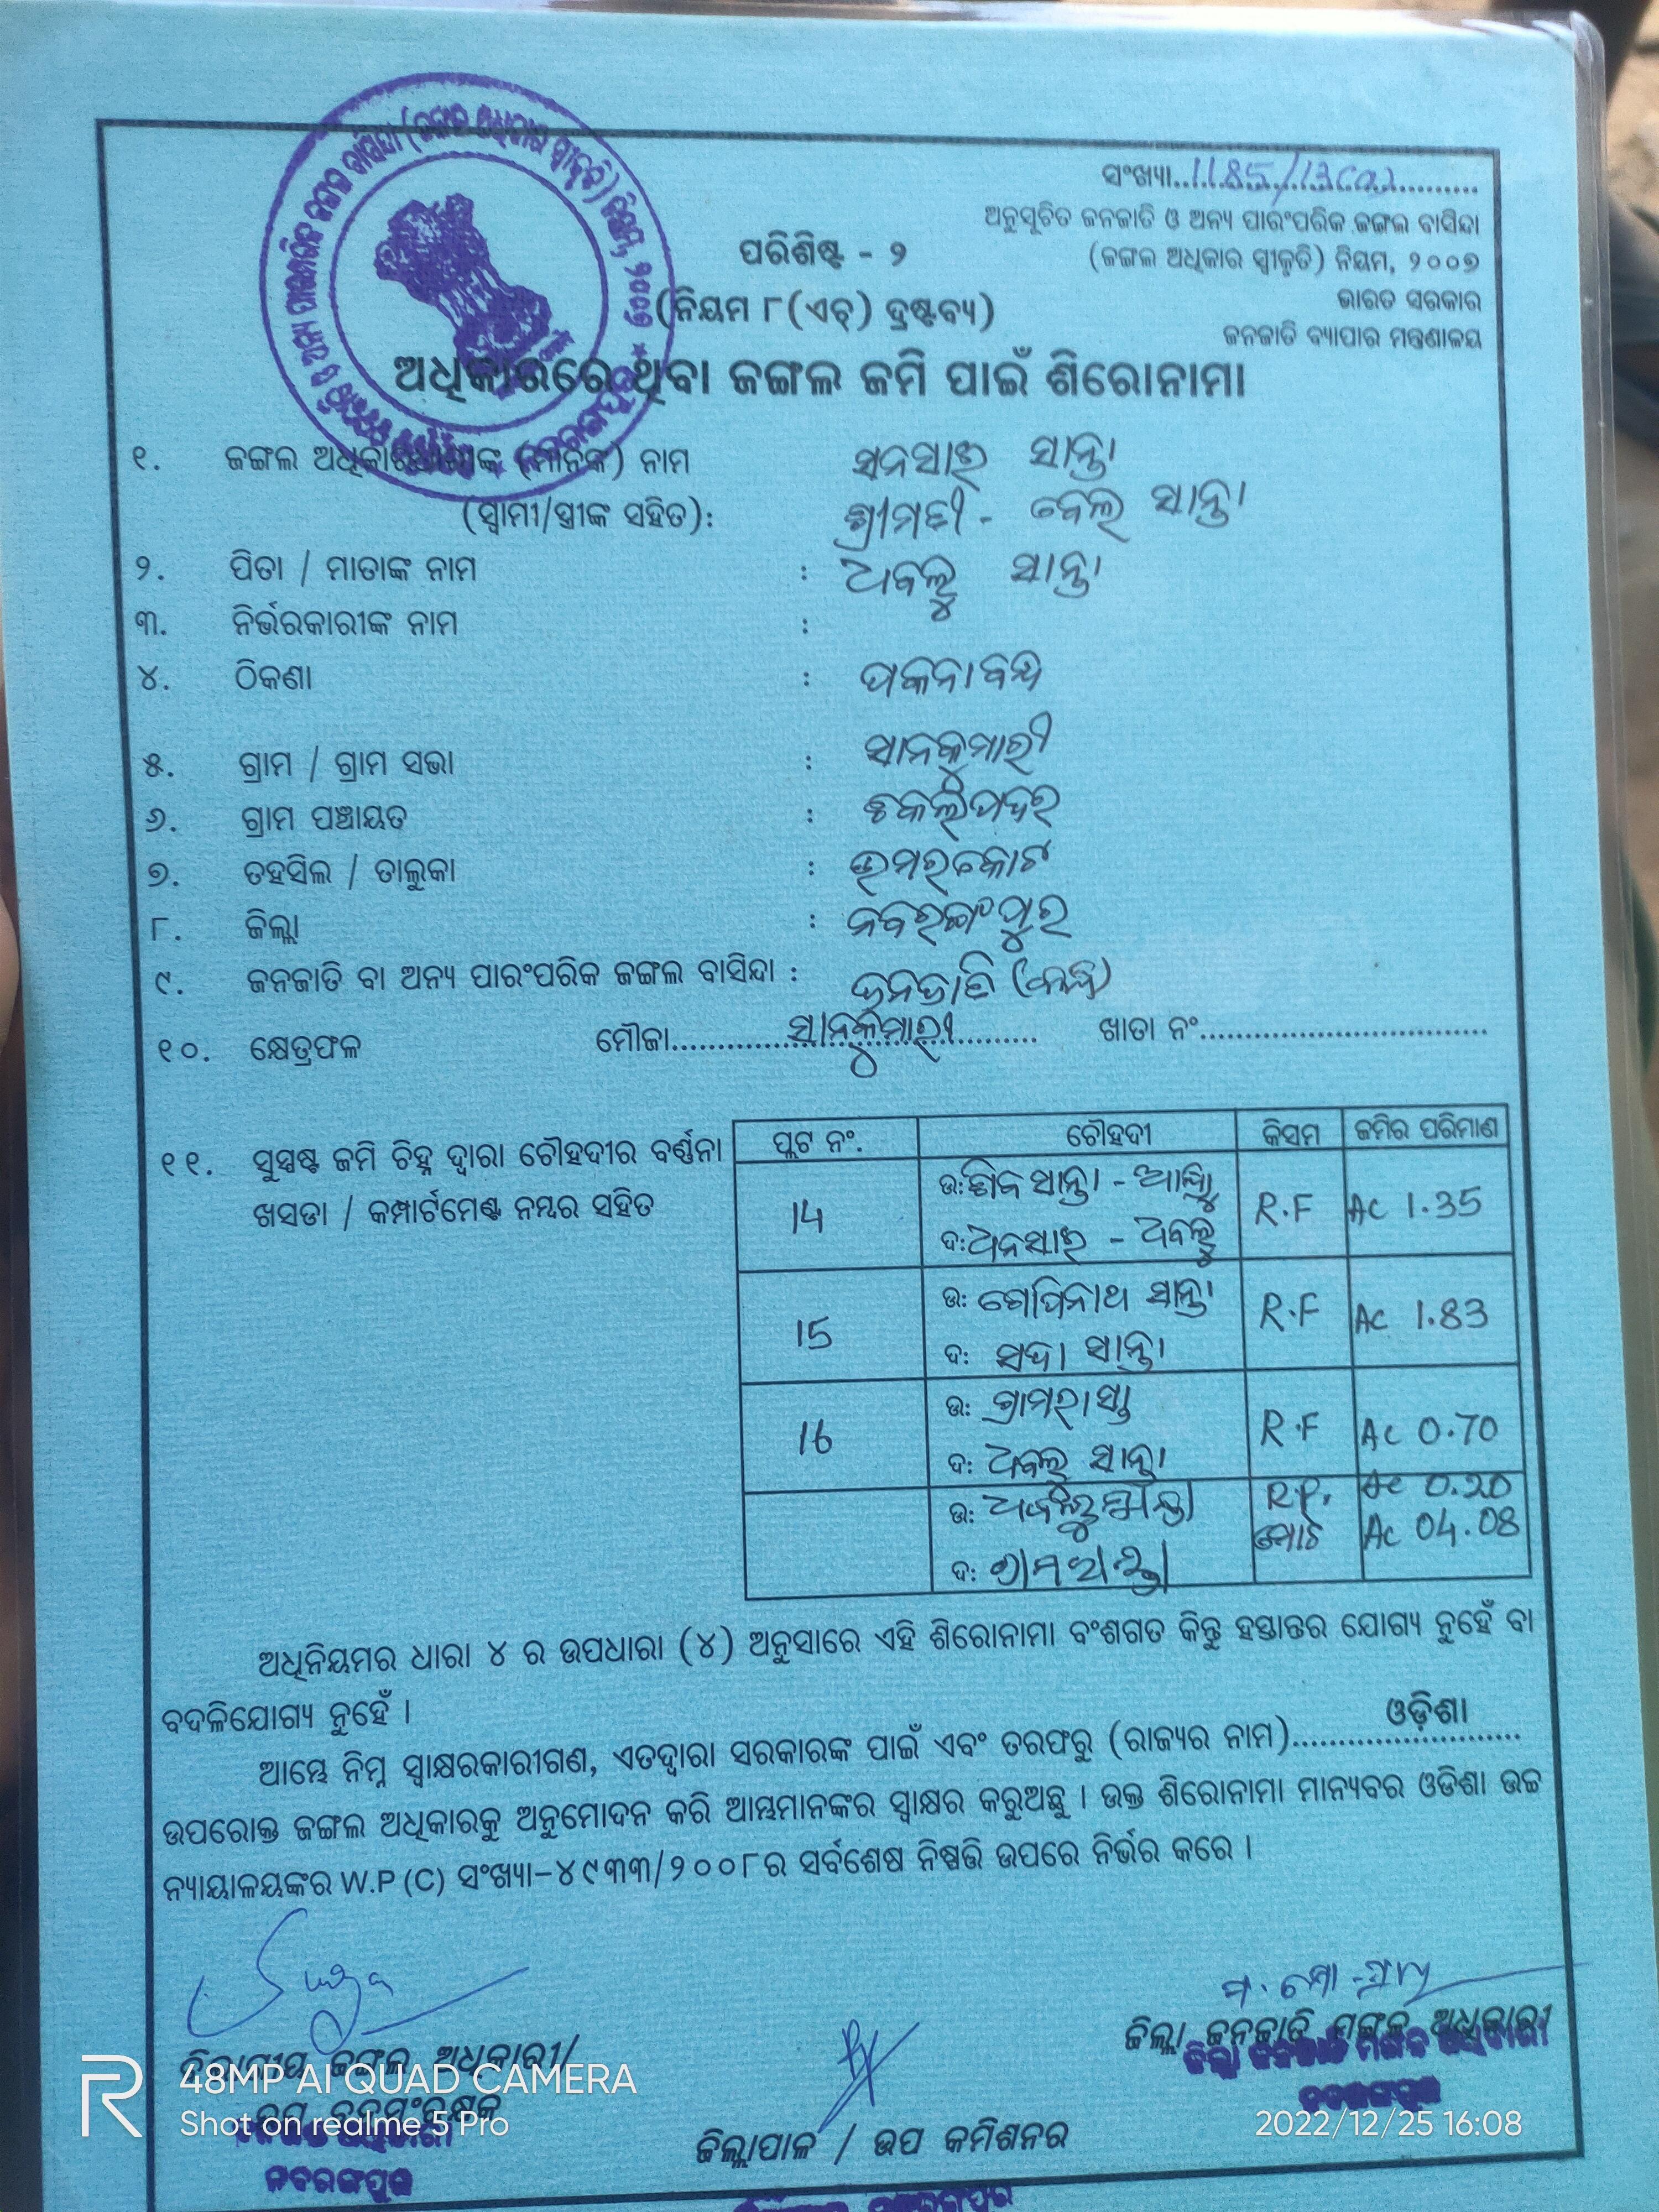 ସଂଖ୍ୟା..1185/13(a)
ଅନୁସୂଚିତ ଜନଜାତି ଓ ଅନ୍ୟ ପାରଂପରିକ ଜଙ୍ଗଲ ବାସିନ୍ଦା
(ଜଙ୍ଗଲ ଅଧିକାର ସ୍ୱୀକୃତି) ନିୟମ, ୨୦୦୭
ଭାରତ ସରକାର
ଜନଜାତି ବ୍ୟାପାର ମନ୍ତ୍ରଣାଳୟ
ପରିଶିଷ୍ଟ - ୨
(ନିୟମ ୮(ଏଚ୍) ଦ୍ରଷ୍ଟବ୍ୟ)
ଅଧିକାରରେ ଥିବା ଜଙ୍ଗଲ ଜମି ପାଇଁ ଶିରୋନାମା
୧. ଜଙ୍ଗଲ (ମାନଙ୍କ) ନାମ ସାନ୍ତା
(ସ୍ୱାମୀ/ସ୍ତ୍ରୀଙ୍କ ସହିତ): ଶ୍ରୀମତୀ - ସାନ୍ତା
୨. ପିତା / ମାତାଙ୍କ ନାମ : ସାନ୍ତା
୩. ନିର୍ଭରକାରୀଙ୍କ ନାମ :
୪. ଠିକଣା : ପକନାବନ୍ଧ
୫. ଗ୍ରାମ / ଗ୍ରାମ ସଭା : ସାନକୁମାରୀ
୬. ଗ୍ରାମ ପଞ୍ଚାୟତ :
୭. ତହସିଲ / ତାଲୁକା : ଉମରକୋଟ
୮. ଜିଲ୍ଲା : ନବରଙ୍ଗପୁର
୯. ଜନଜାତି ବା ଅନ୍ୟ ପାରଂପରିକ ଜଙ୍ଗଲ ବାସିନ୍ଦା : ଜନଜାତି
୧୦. କ୍ଷେତ୍ରଫଳ ମୌଜା.....ସାନକୁମାରୀ..... ଖାତା ନଂ..............................
୧୧. ସୁସ୍ପଷ୍ଟ ଜମି ଚିହ୍ନ ଦ୍ୱାରା ଚୌହଦୀର ବର୍ଣ୍ଣନା
ଖସଡା / କମ୍ପାର୍ଟମେଣ୍ଟ ନମ୍ବର ସହିତ
ପ୍ଲଟ ନଂ. ଚୌହଦୀ କିସମ ଜମିର ପରିମାଣ
14 ଉ: ସାନ୍ତା - R.F AC 1.35
ଦ:
15 ଉ: ଗୋପିନାଥ ସାନ୍ତା R.F AC 1.83
ଦ: ସଦା ସାନ୍ତା
16 ଉ: ଗ୍ରାମରାସ୍ତା R.F AC 0.70
ଦ: ସାନ୍ତା
ଉ: R.P. AC 0.20
ମୋଟ AC 04.08
ଦ:
ଅଧିନିୟମର ଧାରା ୪ ର ଉପଧାରା (୪) ଅନୁସାରେ ଏହି ଶିରୋନାମା ବଂଶଗତ କିନ୍ତୁ ହସ୍ତାନ୍ତର ଯୋଗ୍ୟ ନୁହେଁ ବା
ବଦଳିଯୋଗ୍ୟ ନୁହେଁ ।
ଆମ୍ଭେ ନିମ୍ନ ସ୍ୱାକ୍ଷରକାରୀଗଣ, ଏତଦ୍ୱାରା ସରକାରଙ୍କ ପାଇଁ ଏବଂ ତରଫରୁ (ରାଜ୍ୟର ନାମ)....ଓଡ଼ିଶା....
ଉପରୋକ୍ତ ଜଙ୍ଗଲ ଅଧିକାରକୁ ଅନୁମୋଦନ କରି ଆମ୍ଭମାନଙ୍କର ସ୍ୱାକ୍ଷର କରୁଅଛୁ । ଉକ୍ତ ଶିରୋନାମା ମାନ୍ୟବର ଓଡିଶା ଉଚ୍ଚ
ନ୍ୟାୟାଳୟଙ୍କର W.P (C) ସଂଖ୍ୟା-୪୯୩୩/୨୦୦୮ର ସର୍ବଶେଷ ନିଷ୍ପତ୍ତି ଉପରେ ନିର୍ଭର କରେ ।
ଜିଲ୍ଲା ଜନଜାତି ମଙ୍ଗଳ ଅଧିକାରୀ
ଜିଲ୍ଲା ଜନଜାତି ମଙ୍ଗଳ ଅଧିକାରୀ
ନବରଙ୍ଗପୁର
ଜଙ୍ଗଲ ଅଧିକାରୀ/
48MP AI QUAD CAMERA
Shot on realme 5 Pro
2022/12/25 16:08
ନବରଙ୍ଗପୁର
ଜିଲ୍ଲାପାଳ / ଉପ କମିଶନର